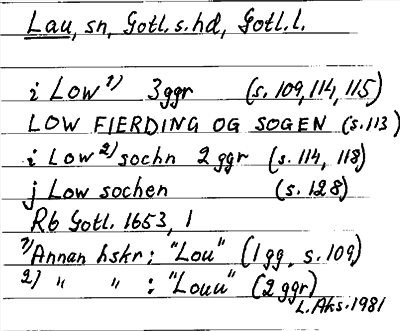 Lau, sn, Gotl.s.hd, Gotl.l.
i Low¹⁾ 3ggr (s. 109, 114, 115)
LOW FIERDING OG SOGEN (s. 113)
i Low²⁾ sochn 2ggr (s. 114, 118)
j Low sochen (s. 128)
Rb Gotl. 1653, 1
¹⁾Annan hskr: "Lou" (1gg, s. 109)
²⁾ " " : "Louu" (2 ggr)
L. Aks. 1981